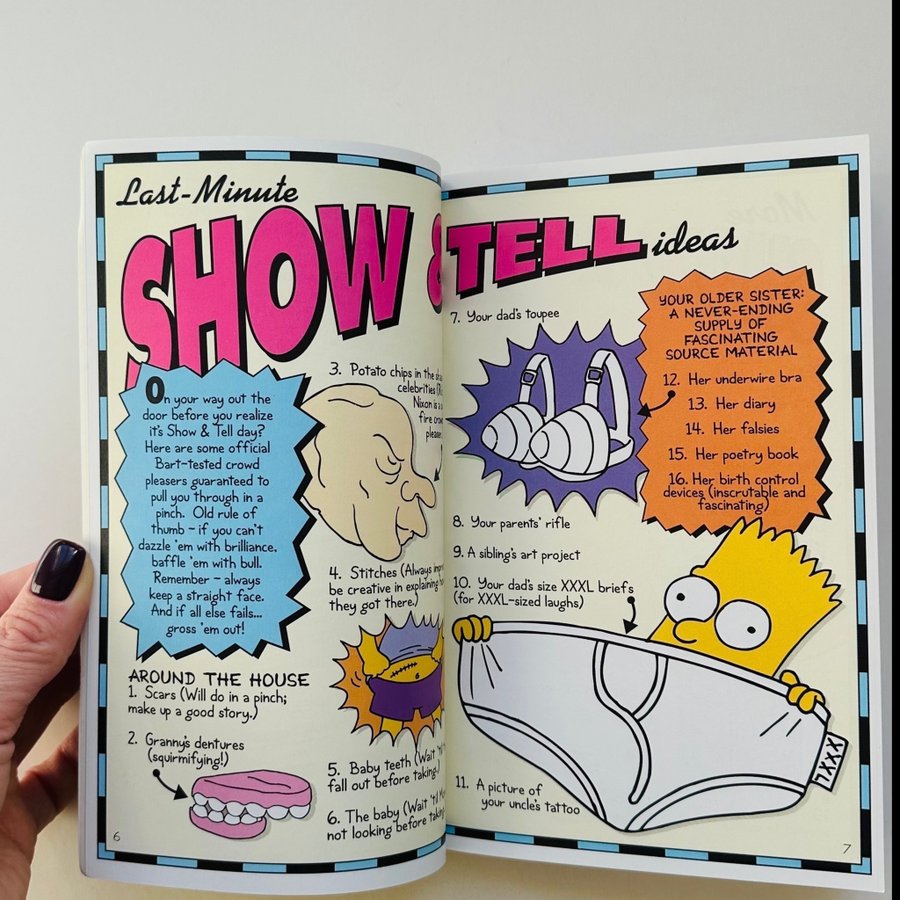 Last-Minute
SHOW & TELL ideas
On your way out the
door before you realize
it's Show & Tell day?
Here are some official
Bart-tested crowd
pleasers guaranteed to
pull you through in a
pinch. Old rule of
thumb - if you can't
dazzle 'em with brilliance,
baffle 'em with bull.
Remember - always
keep a straight face.
And if all else fails...
gross 'em out!
AROUND THE HOUSE
1. Scars (Will do in a pinch;
make up a good story.)
2. Granny's dentures
(squirmifying!)
3. Potato chips in the
celebrities
Nixon is a
fire
4. Stitches (Always
be creative in explaining
they got there.)
6
5. Baby teeth (Wait
fall out before taking.)
6. The baby (Wait 'til
not looking before
6
7. Your dad's toupee
8. Your parents' rifle
9. A sibling's art project
10. Your dad's size XXXL briefs
(for XXXL-sized laughs)
XXXL
11. A picture of
your uncle's tattoo
YOUR OLDER SISTER:
A NEVER-ENDING
SUPPLY OF
FASCINATING
SOURCE MATERIAL
12. Her underwire bra
13. Her diary
14. Her falsies
15. Her poetry book
16. Her birth control
devices (inscrutable and
fascinating)
7